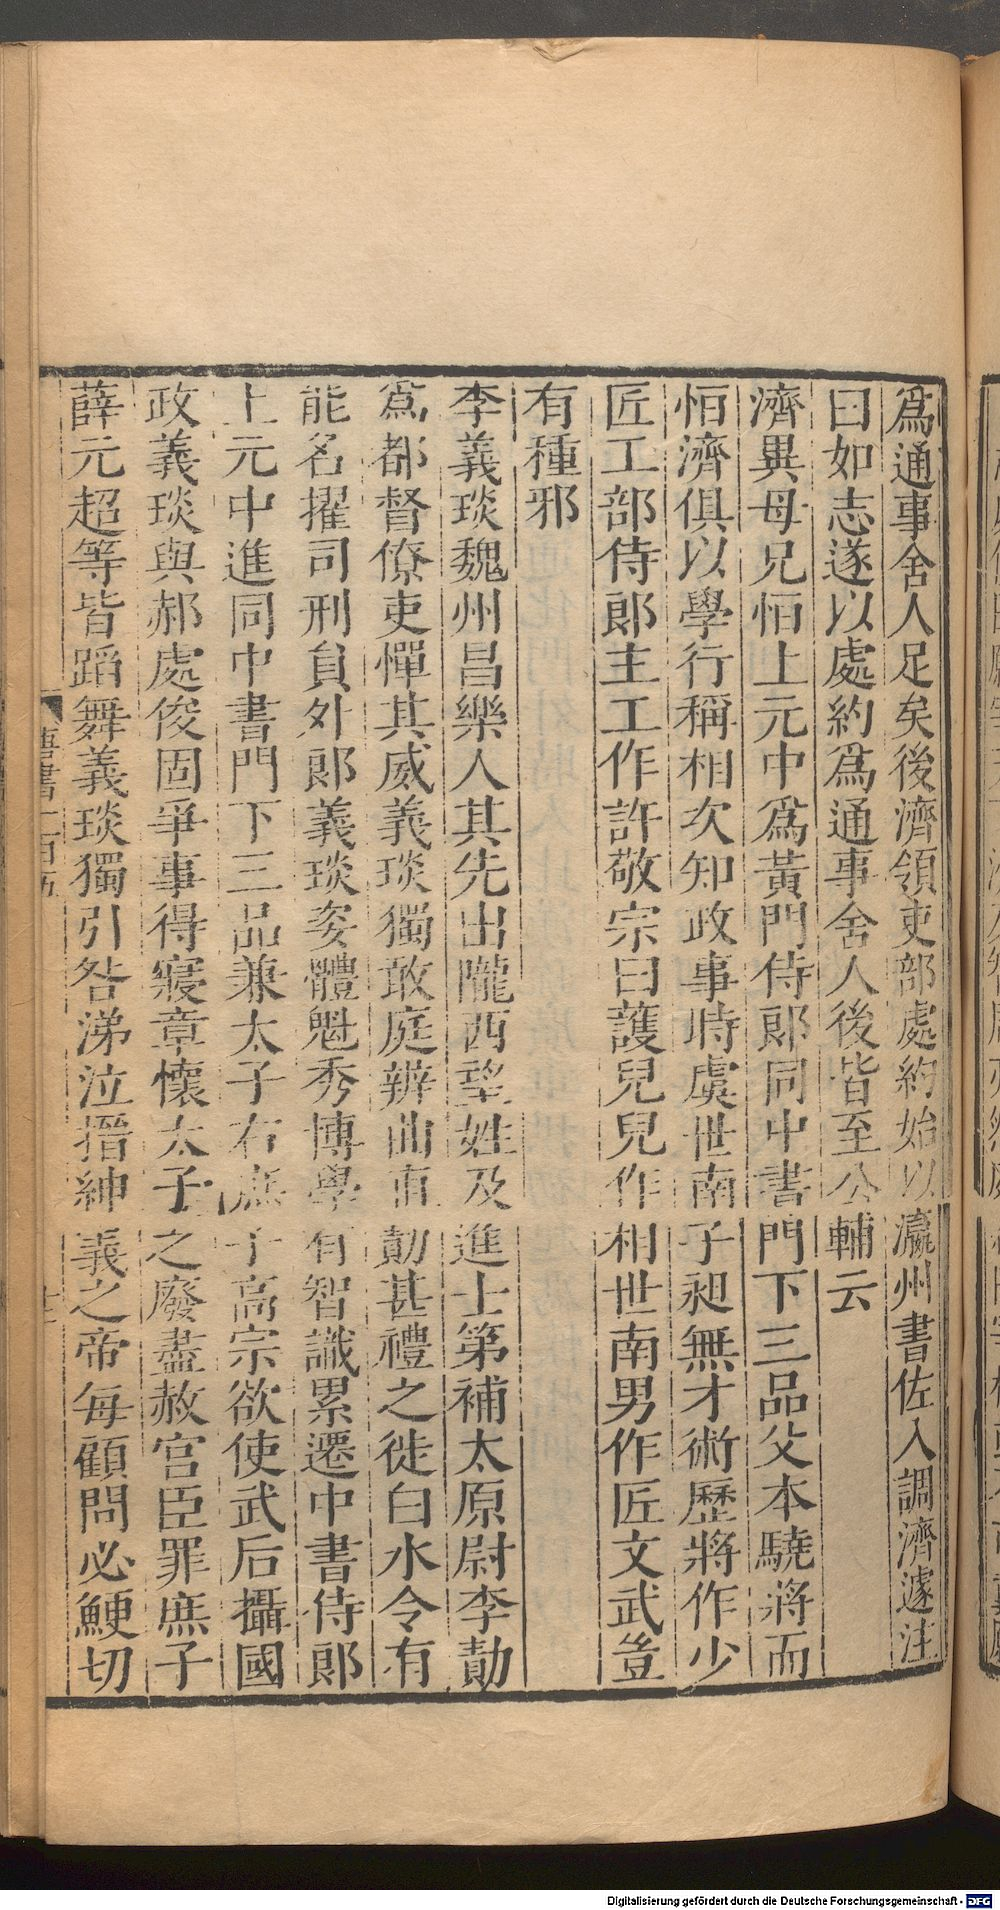 爲通事舍人足矣後濟領吏部處約始以瀛州書佐入調濟遽注
曰如志遂以處約爲通事舍人後皆至公輔云
濟異母兄恒上元中爲黃門侍郎同中書門下三品父本驍將而
恒濟俱以學行稱相次知政事時虞世南子昶無才術歷將作少
匠工部侍郎主工作許敬宗曰護兒兒作相世南男作匠文武豈
有種邪
李義琰魏州昌樂人其先出隴西望姓及進士第補太原尉李勣
爲都督僚吏憚其威義琰獨敢庭辨曲直勣甚禮之徙白水令有
能名擢司刑員外郎義琰姿體魁秀博學有智識累遷中書侍郎
上元中進同中書門下三品兼太子右庶子高宗欲使武后攝國
政義琰與郝處俊固爭事得寢章懷太子之廢盡赦官臣罪庶子
薛元超等皆蹈舞義琰獨引咎涕泣搢紳義之帝每顧問必鯁切
唐書一百五
Digitalisierung gefördert durch die Deutsche Forschungsgemeinschaft - DFG